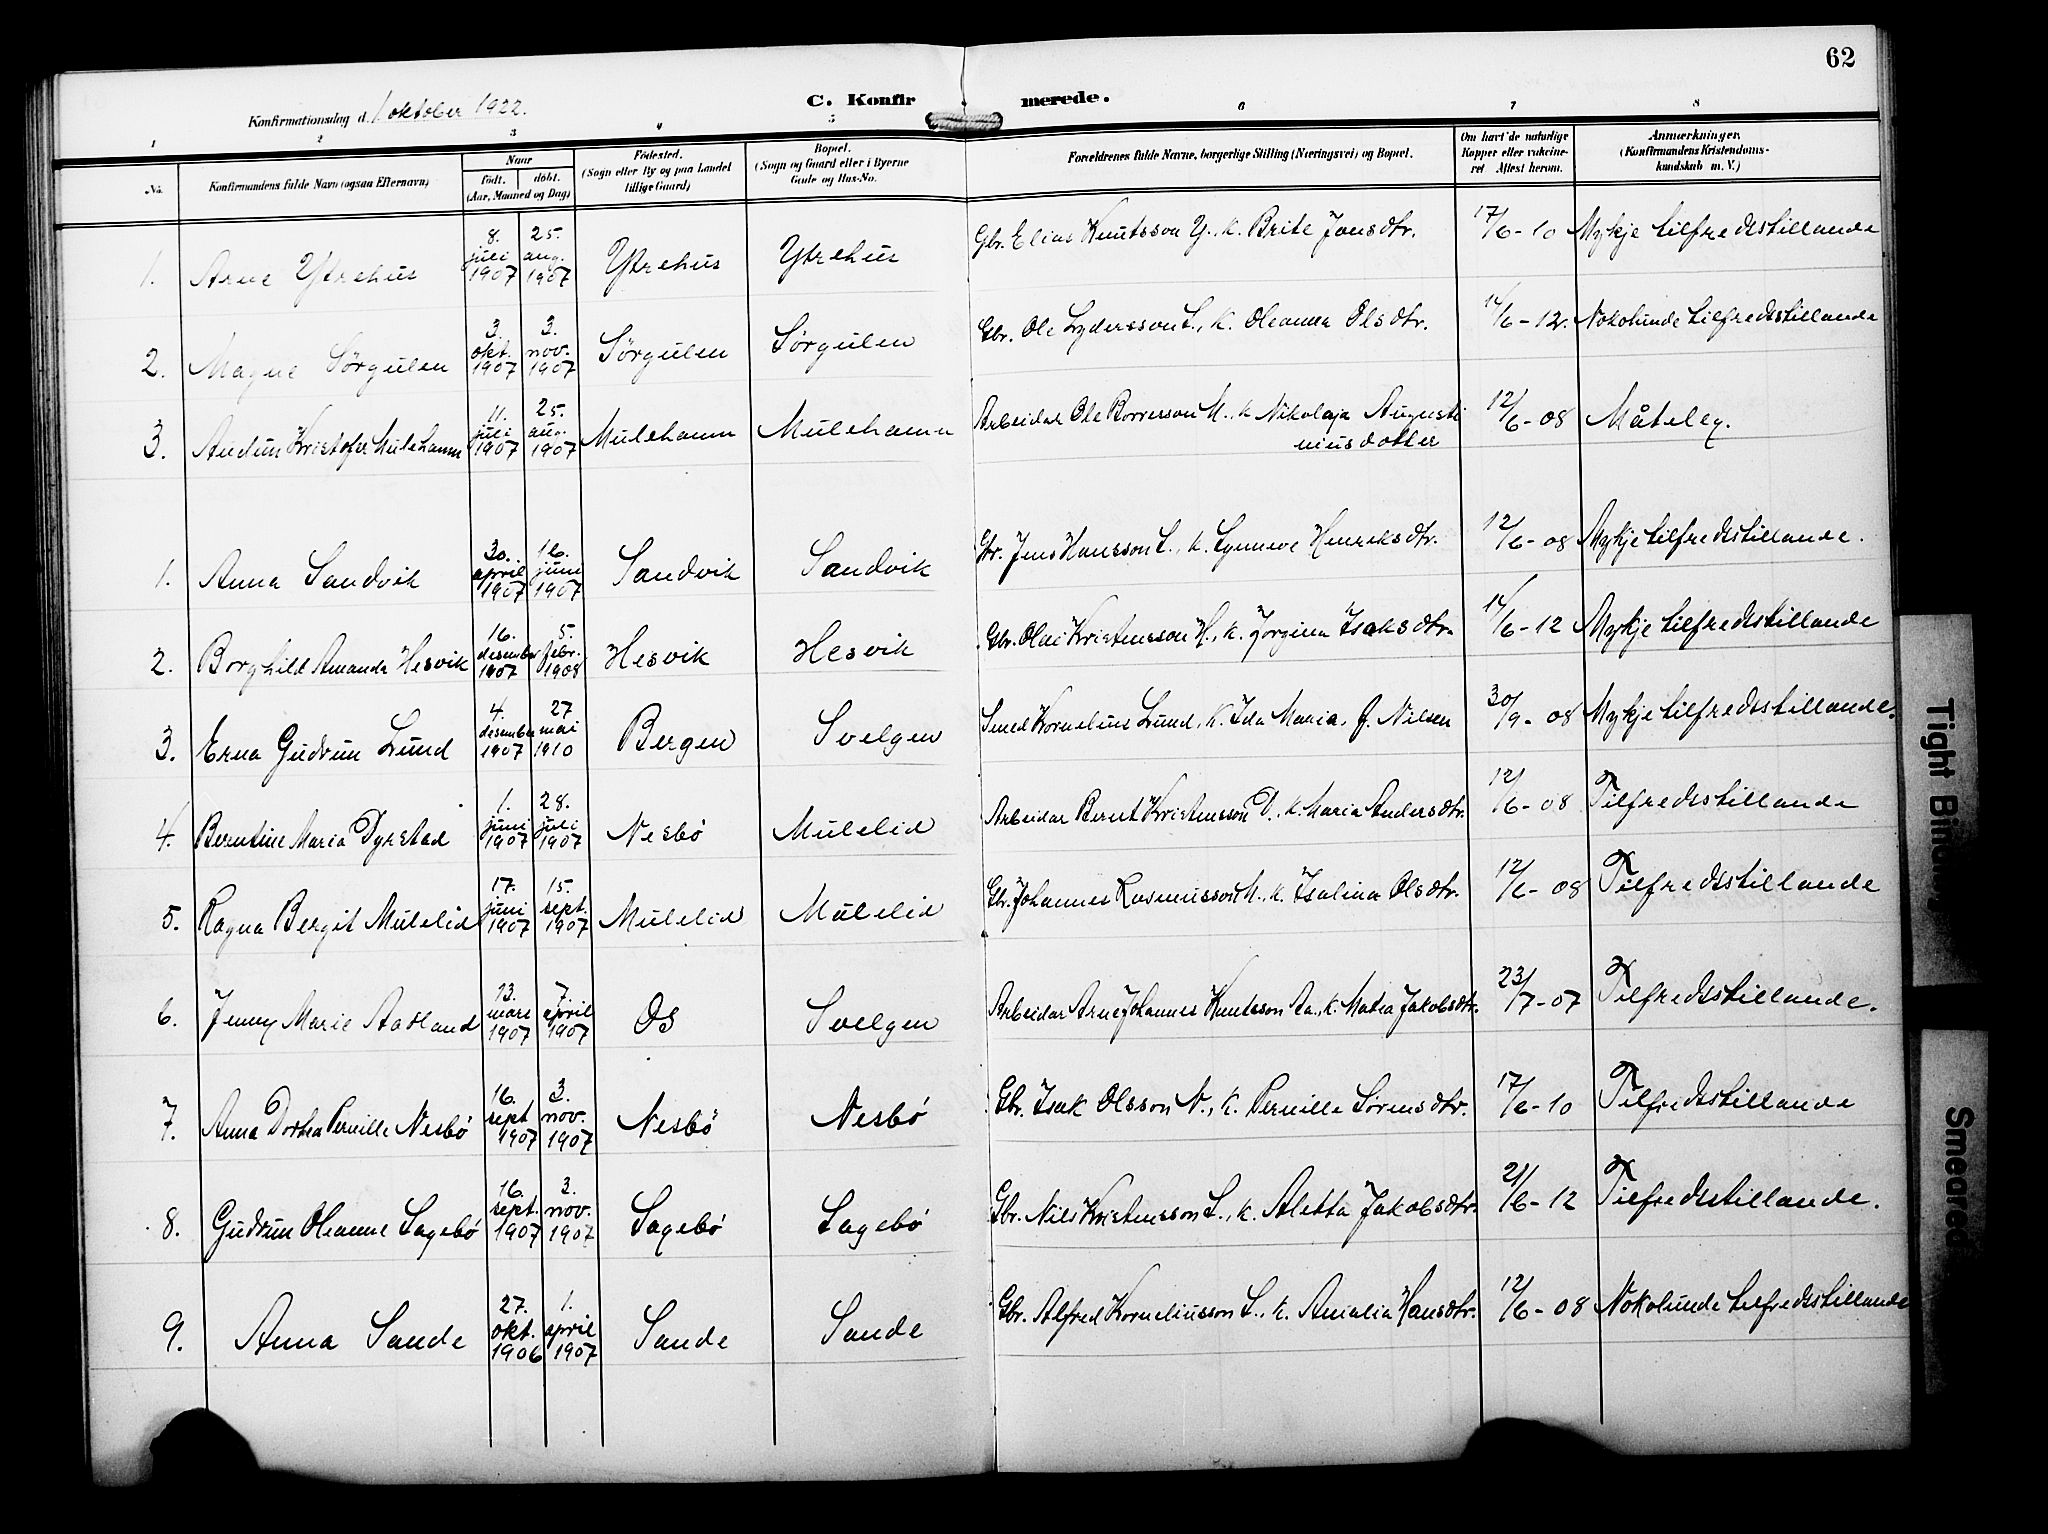 62
C. Konfirmerede.
Konfirmationsdag d. 1 oktober 1922.
1 2 3 4 5 6 7 8
No. Konfirmandens fulde Navn (ogsaa Efternavn) Naar født. døbt. (Aar, Maaned og Dag) Fødested. (Sogn eller By og paa Landet tillige Gaard) Bopæl. (Sogn og Gaard eller i Byerne Gade og Hus-No. Forældrenes fulde Navne, borgerlige Stilling (Næringsvei) og Bopæl. Om havt de naturlige Kopper eller vakcineret Attest herom. Anmærkninger. (Konfirmandens Kristendomskundskab m. V.)
1. Arne Ytrehus 8. juli 1907 25. aug. 1907 Ytrehus Ytrehus Gbr. Elias Knutsson Y., k. Brite Jonsdtr. 17/6-10 Mykje tilfredsstillande
2. Magne Sørgulen 3. okt. 1907 3. nov. 1907 Sørgulen Sørgulen Gbr. Ole Lydersson S., k. Oleanna Olsdtr. 14/6-12. Nokolunde tilfredsstillande
3. Audun Kristofer Mulehamn 11. juli 1907 25. aug. 1907 Mulehamn Mulehamn Arbeidar Ole M., k. Nikolaja Augustinusdotter 12/6-08 Måteleg.
1. Anna Sandvik 30. april 1907 16. juni 1907 Sandvik Sandvik Gbr. Jens Hansson S., k. Synneve Henriksdtr. 12/6-08 Mykje tilfredsstillande.
2. Borghild Amanda Hesvik 16. desember 1907 5. febr. 1908 Hesvik Hesvik Gbr. Olai Kristensson H., k. Jorgina Isaksdtr. 14/6-12 Mykje tilfredsstillande
3. Erna Gudrun Lund 4. desember 1907 27 mai 1910 Bergen Svelgen Smed Kornelius Lund, k. Ida Maria, f. Nilsen 30/9-08 Mykje tilfredsstillande.
4. Berntine Maria Dyrstad 1. juni 1907 28. juli 1907 Nesbø Mulelid Arbeidar Bernt Kristensson D., k. Maria Andersdtr. 12/6-08 Tilfredsstillande
5. Ragna Bergit Mulelid 17. juni 1907 15. sept. 1907 Mulelid Mulelid Gbr. Johannes Rasmusson M., k. Isalina Olsdtr. 12/6-08 Tilfredsstillande
6. Jenny Marie Aadland 13. mars 1907 7. april 1907 Os Svelgen Arbeidar Arne Johannes Knutsson Aa., k. Matea Jakobsdtr. 23/7-07 Tilfredsstillande.
7. Anna Dortea Pernille Nesbø 16. sept 1907 3. nov. 1907 Nesbø Nesbø Gbr. Isak Olsson N., k. Pernille Sørensdtr. 17/6-10 Tilfredsstillande
8. Gudrun Oleanne Sagebø 16. sept. 1907 3. nov. 1907 Sagebø Sagebø Gbr. Nils Kristensson S., k. Aletta Jakobsdtr. 21/6-12 Tilfredsstillande.
9. Anna Sande 27. okt. 1906 1. april 1907 Sande Sande Gbr. Alfred Korneliusson S., k. Amalia Hansdtr. 12/6-08 Nokolunde tilfredsstillande
Smeared